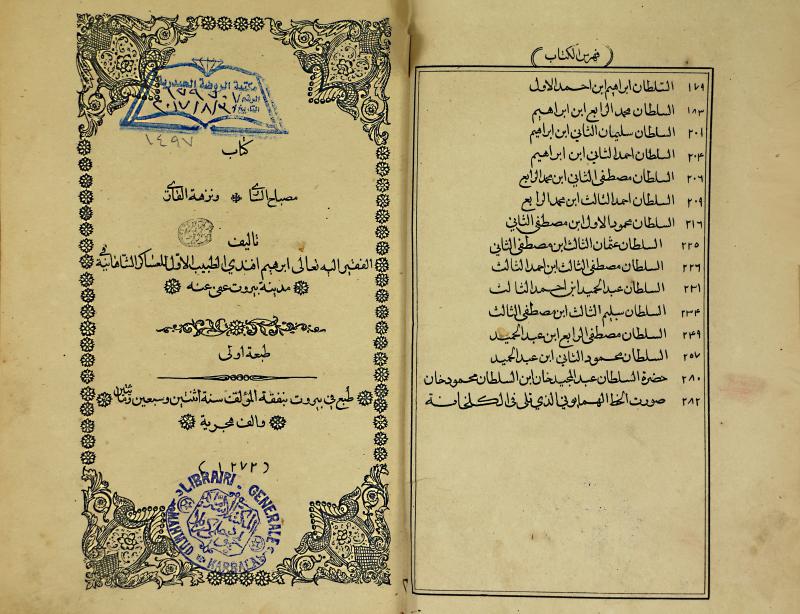 فهرس الكتاب
١٧٩ السلطان ابراهيم ابن احمد الاول
١٨٣ السلطان محمد الرابع ابن ابراهيم
٢٠١ السلطان سليمان الثاني ابن ابراهيم
٢٠٤ السلطان احمد الثاني ابن ابراهيم
٢٠٦ السلطان مصطفى الثاني ابن محمد الرابع
٢٠٩ السلطان احمد الثالث ابن محمد الرابع
٢١٦ السلطان محمود الاول ابن مصطفى الثاني
٢٢٥ السلطان عثمان الثالث ابن مصطفى الثاني
٢٢٦ السلطان مصطفى الثالث ابن احمد الثالث
٢٣١ السلطان عبد الحميد ابن احمد الثالث
٢٣٤ السلطان سليم الثالث ابن مصطفى الثالث
٢٤٩ السلطان مصطفى الرابع ابن عبد الحميد
٢٥٧ السلطان محمود الثاني ابن عبد الحميد
٢٨٠ حضرة السلطان عبد المجيد خان ابن السلطان محمود خان
٢٨٢ صورت الخط الهمايوني الذي قري في الكلخانة
مكتبة الروضة الحيدرية
الرقم
التاريخ
١٤٩٧
كتاب
مصباح الساري ونزهة القاري
تاليف
الفقير اليه تعالى ابرهيم افندي الطبيب الاول للعساكر الشاهانية في
مدينة بيروت عفى عنه
طبعة اولى
طُبع في بيروت بنفقة المؤلف سنة اثنتين وسبعين ومائتين
والف هجرية
(١٢٧٢)
LIBRAIRI GENERALE
KARBALA